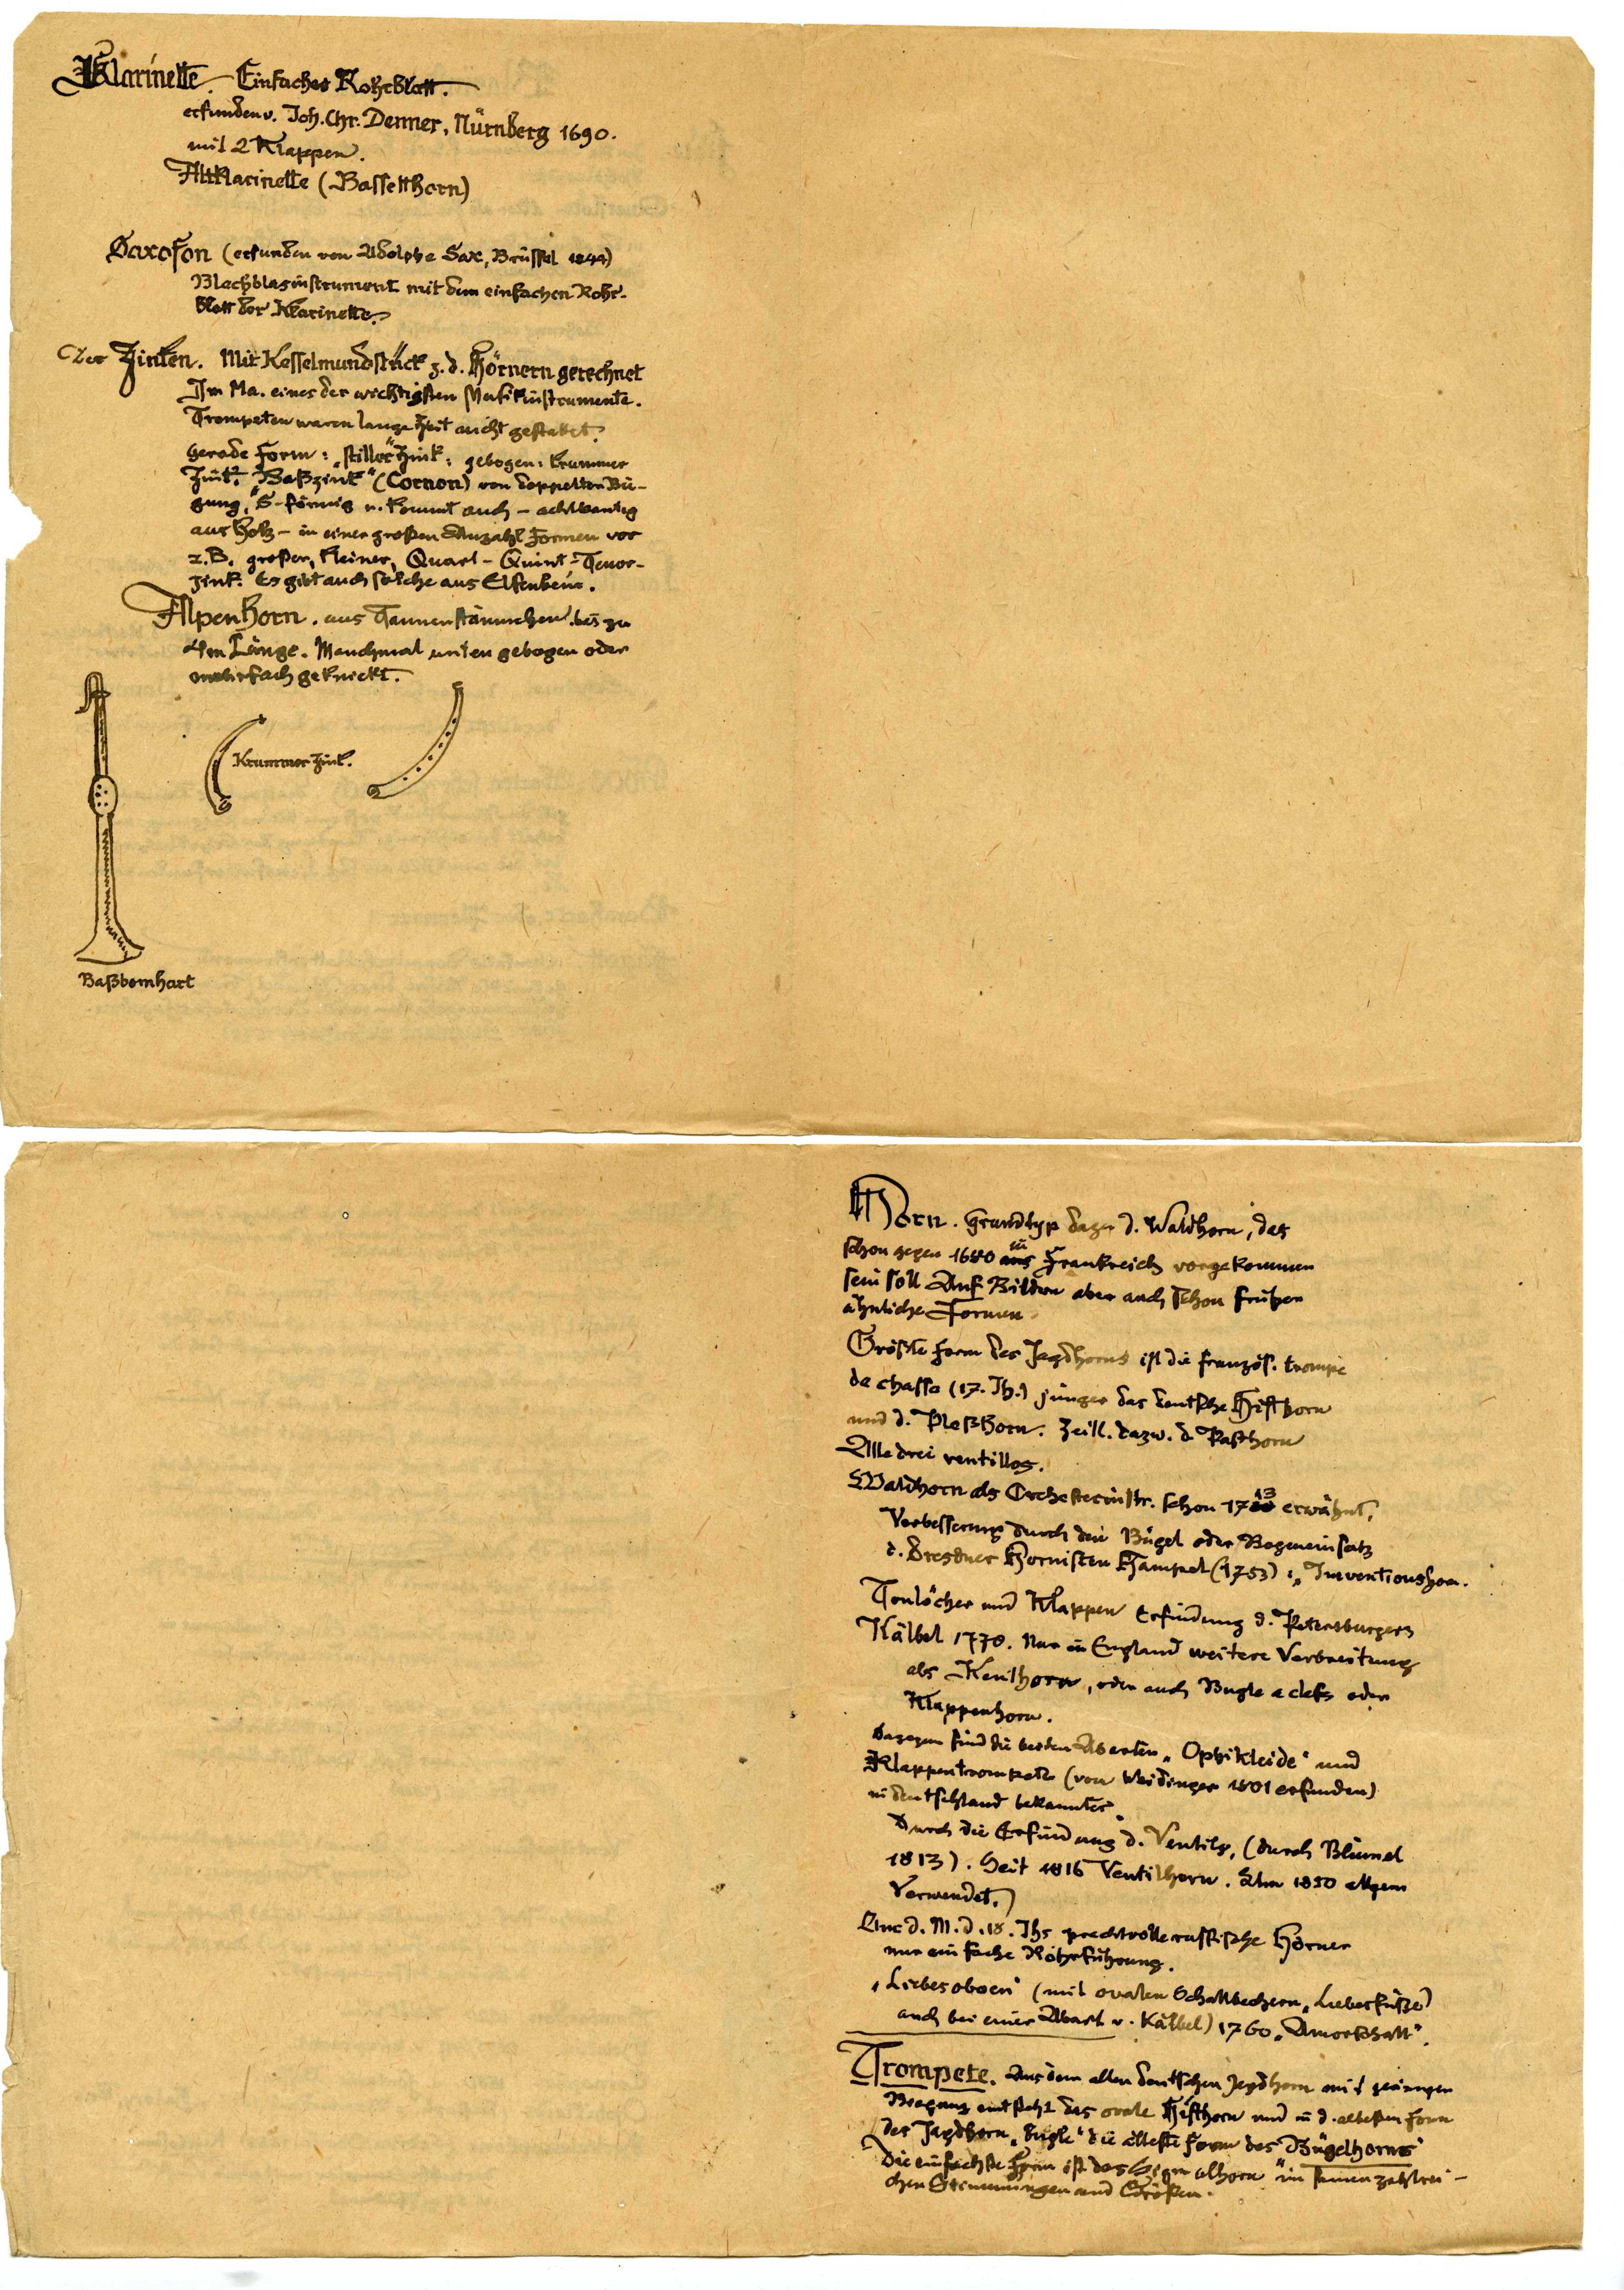 Klarinette. Einfaches Rohrblatt.
erfunden v. Joh. Chr. Denner, Nürnberg 1690.
mit 2 Klappen.
Altklarinette (Bassetthorn)
Saxofon (erfunden von Adolphe Sax, Brüssel 1844)
Blechblasinstrument mit dem einfachen Rohr-
blatt der Klarinette.
Der Zinken. Mit Kesselmundstück z. d. Hörnern gerechnet
Im Ma. eines der wichtigsten Musikinstrumente.
Trompeten waren lange Zeit nicht gestattet.
Gerade Form: „stiller" Zink: gebogen: krummer
Zink. „Baßzink" (Cornon) von doppelter Bie-
gung, S-förmig u. kommt auch – achtkantig
aus Holz – in einer großen Anzahl Formen vor
z.B. großer, kleiner, Quart- Quint- Tenor-
zink. Es gibt auch solche aus Elfenbein.
Alpenhorn. aus Tannenstämmchen bis zu
4m Länge. Manchmal unten gebogen oder
mehrfach geknickt.
Krummer Zink.
Baßbomhart
Horn. Grundtyp dazu d. Waldhorn, das
schon gegen 1680 in Frankreich vorgekommen
sein soll Auf Bildern aber auch schon früher
ähnliche Formen
Größte Form des Jagdhorns ist die französ. trompe
de chasse (17. Jh.) jünger das deutsche Hifthorn
und d. Pleßhorn. Zeitl. dazw. d. Posthorn
Alle drei ventillos.
Waldhorn als Orchesterinstr. schon 1713 erwähnt,
Verbesserung durch den Bügel oder Bogeneinsatz
d. Dresdner Hornisten Hampel (1753) : „Inventionshorn.
Tonlöcher und Klappen Erfindung d. Petersburgers
Kälbel 1770. Nur in England weitere Verbreitung
als Kenthorn, oder auch Bugle a clefs oder
Klappenhorn.
Dagegen sind die beiden Abarten „Ophikleide" und
Klappentrompete (von Weidinger 1801 erfunden)
in Deutschland bekannter.
Durch die Erfindung d. Ventils, (durch Blümel
1813). Seit 1816 Ventilhorn. Um 1850 allgem
verwendet.)
Um d. M. d. 18. Jhs prachtvolle russische Hörner
nur einfache Rohrführung.
„Liebesoboen" (mit ovalen Schallbechern „Liebesfüße)
auch bei einer Abart v. Kälbel) 1760 „Amorschall".
Trompete. Aus dem alten deutschen Jagdhorn mit geringer
Biegung entsteht das ovale Hifthorn und in d. ältesten Form
des Jagdhorn „Bugle" die älteste Form des Bügelhorns"
Die einfachste Form ist das Signalhorn" in seinen zahlrei-
chen Stimmungen und Größen.